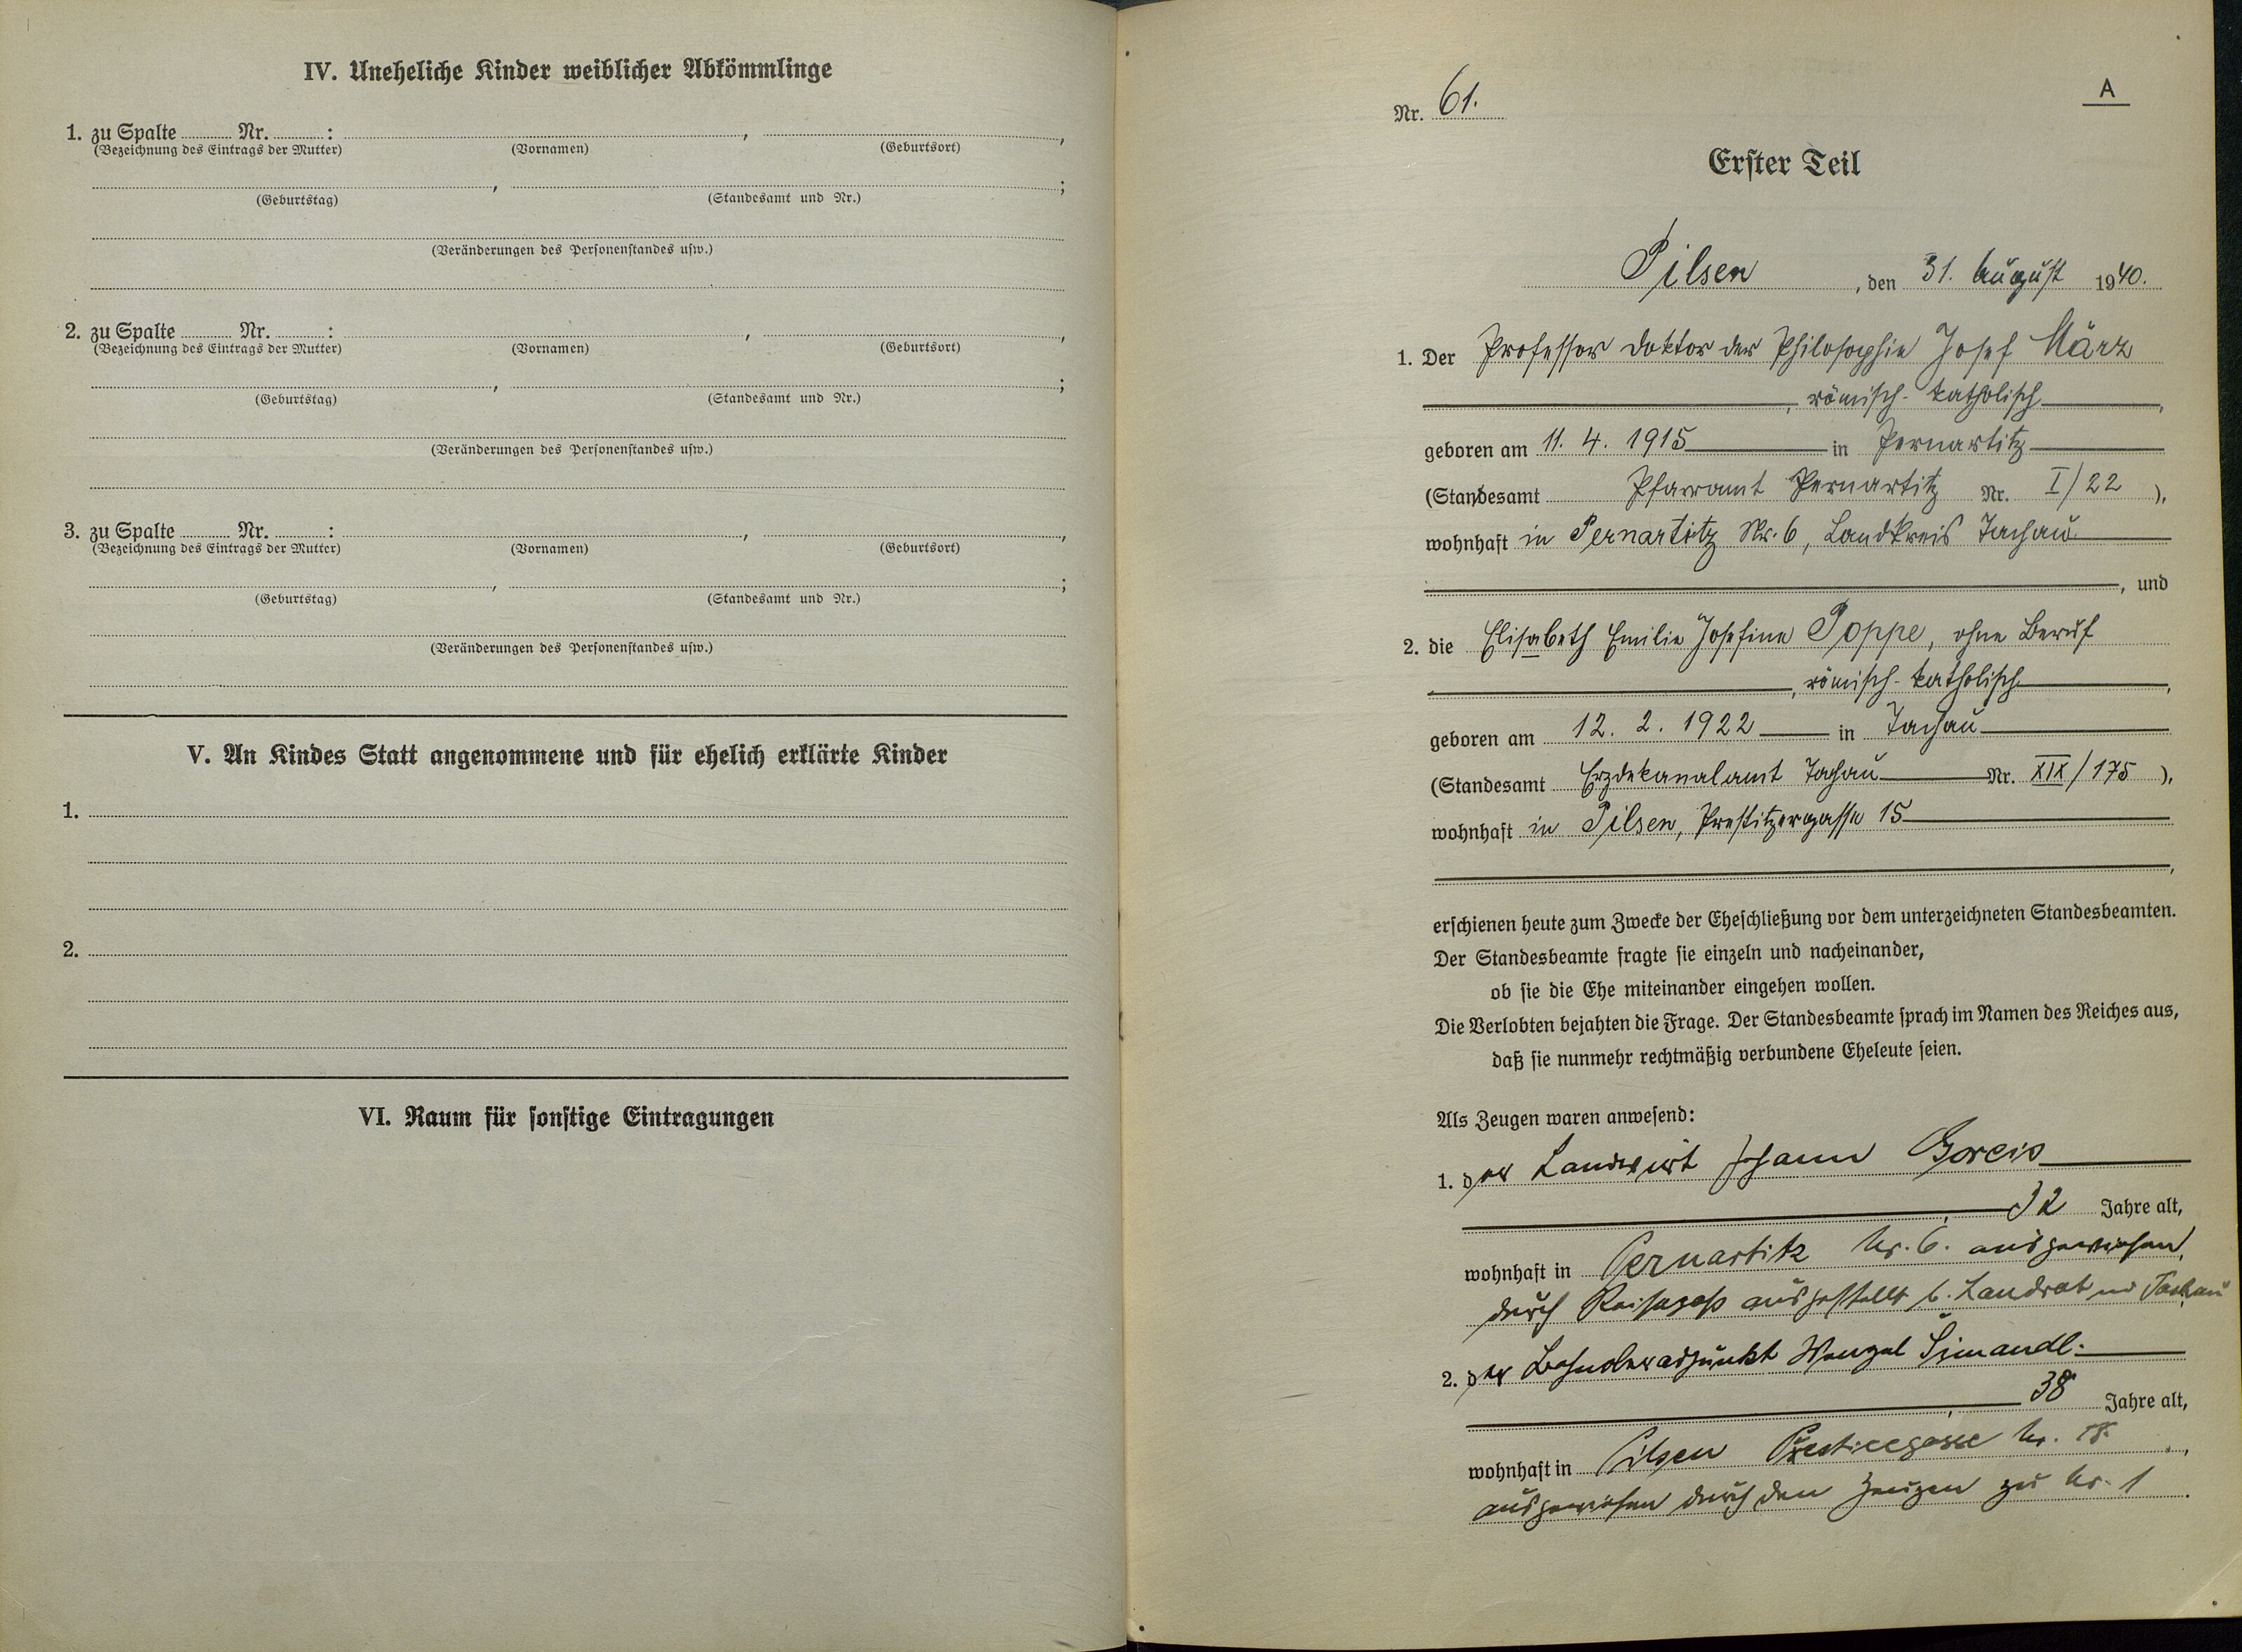 IV. Uneheliche Kinder weiblicher Abkömmlinge
1. zu Spalte Nr. : , ,
(Bezeichnung des Eintrags der Mutter) (Vornamen) (Geburtsort)
, ;
(Geburtstag) (Standesamt und Nr.)
(Veränderungen des Personenstandes usw.)
2. zu Spalte Nr. : , ,
(Bezeichnung des Eintrags der Mutter) (Vornamen) (Geburtsort)
, ;
(Geburtstag) (Standesamt und Nr.)
(Veränderungen des Personenstandes usw.)
3. zu Spalte Nr. : , ,
(Bezeichnung des Eintrags der Mutter) (Vornamen) (Geburtsort)
, ;
(Geburtstag) (Standesamt und Nr.)
(Veränderungen des Personenstandes usw.)
V. An Kindes Statt angenommene und für ehelich erklärte Kinder
1.
2.
VI. Raum für sonstige Eintragungen
A
Nr. 61.
Erster Teil
Pilsen, den 31. August 1940.
1. Der Professor Doktor der Philosophie Josef März
, römisch-katholisch,
geboren am 11. 4. 1915 in Pernartitz
(Standesamt Pfarramt Pernartitz Nr. I/22),
wohnhaft in Pernartitz Nr. 6, Landkreis Tachau
, und
2. die Elisabeth Emilie Josefine Poppe, ohne Beruf
, römisch-katholisch,
geboren am 12. 2. 1922 in Tachau
(Standesamt Erzdekanalamt Tachau Nr. XIX/175),
wohnhaft in Pilsen, Prestitzergasse 15
,
erschienen heute zum Zwecke der Eheschließung vor dem unterzeichneten Standesbeamten.
Der Standesbeamte fragte sie einzeln und nacheinander,
ob sie die Ehe miteinander eingehen wollen.
Die Verlobten bejahten die Frage. Der Standesbeamte sprach im Namen des Reiches aus,
daß sie nunmehr rechtmäßig verbundene Eheleute seien.
Als Zeugen waren anwesend:
1. der Landwirt Johann Goreis
, 32 Jahre alt,
wohnhaft in Pernartitz Nr. 6. ausgewiesen,
durch Reisepass ausgestellt b. Landrat in Tachau
2. der Wenzel Šimandl.
, 38 Jahre alt,
wohnhaft in Pilsen Nr. 15.,
ausgewiesen durch den Zeugen zu Nr. 1.